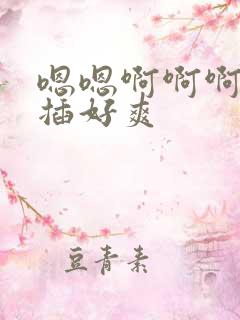 嗯嗯啊啊啊
插好爽
豆青素